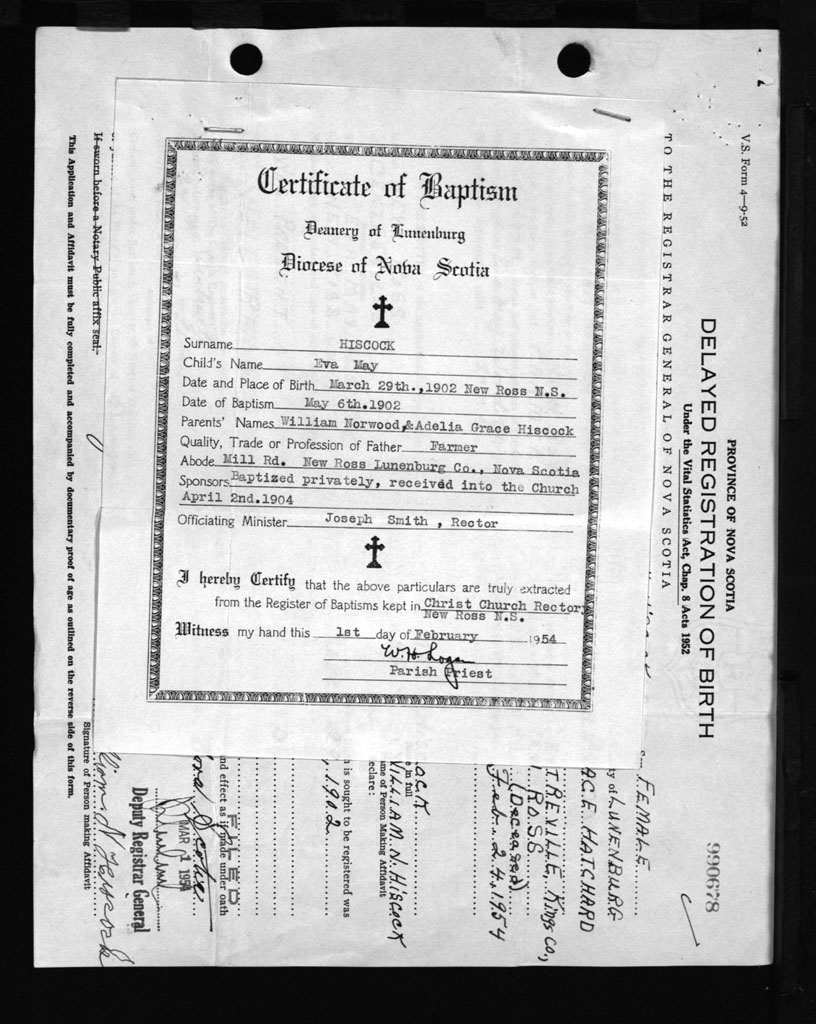 Certificate of Baptism
Deanery of Lunenburg
Diocese of Nova Scotia
Surname HISCOCK
Child's Name Eva May
Date and Place of Birth March 29th.,1902 New Ross N.S.
Date of Baptism May 6th.1902
Parents' Names William Norwood,&Adelia Grace Hiscock
Quality, Trade or Profession of Father Farmer
Abode Mill Rd. New Ross Lunenburg Co., Nova Scotia
Sponsors Baptized privately, received into the Church
April 2nd.1904
Officiating Minister Joseph Smith , Rector
I hereby Certify that the above particulars are truly extracted
from the Register of Baptisms kept in Christ Church Rectory
New Ross N.S.
Witness my hand this 1st day of February 1954
W.H. Logan
Parish Priest
V.S. Form 4—9-52
PROVINCE OF NOVA SCOTIA
DELAYED REGISTRATION OF BIRTH
Under the Vital Statistics Act, Chap. 8 Acts 1952
TO THE REGISTRAR GENERAL OF NOVA SCOTIA
990678
FEMALE
ty of LUNENBURG
ACE HATCHARD
TREVILLE, Kings Co,
ROSS
(Deceased)
Feb. 24, 1954
OCK
e in full
WILLIAM N. HISCOCK
me of Person Making Affidavit
eclare:
h is sought to be registered was
1902
nd effect as if made under oath
FILED
MAR 1 1954
Deputy Registrar General
Signature of Person making Affidavit
If sworn before a Notary Public affix seal.
This Application and Affidavit must be fully completed and accompanied by documentary proof of age as outlined on the reverse side of this form.